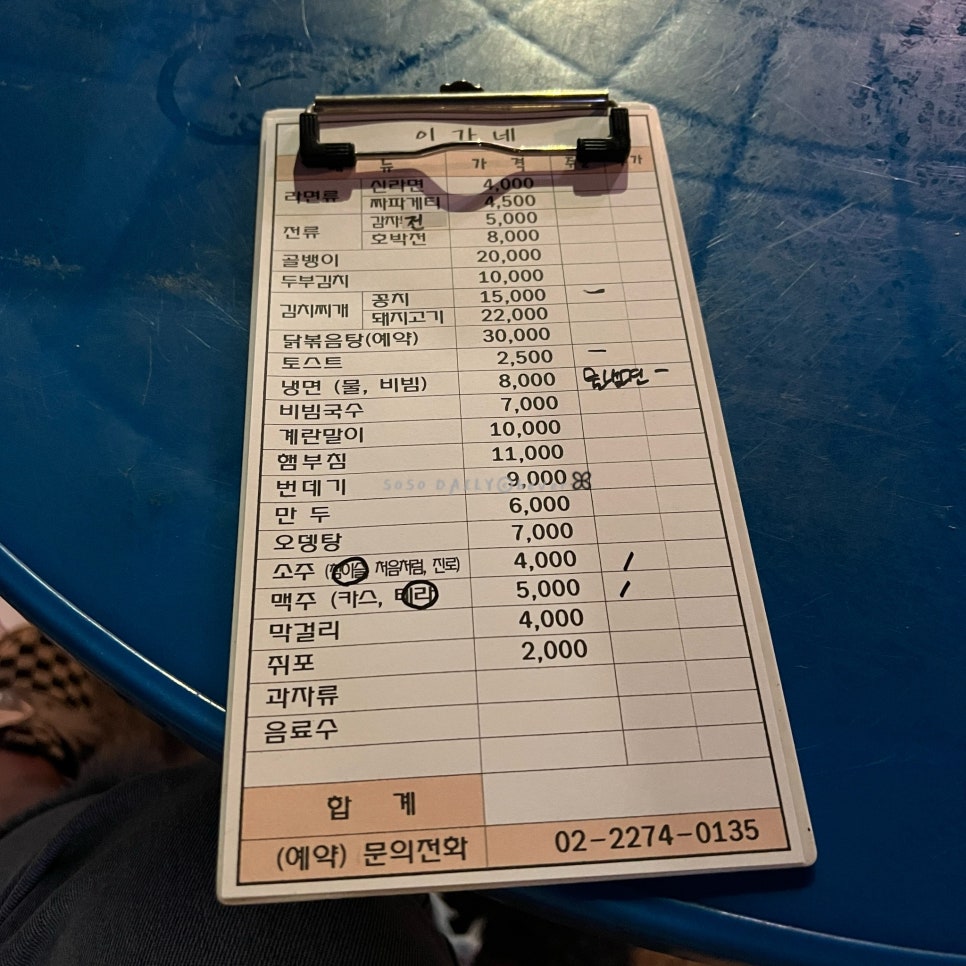 이가네
뉴 가 격
라면류 신라면 4,000
짜파게티 4,500
전류 감자전 5,000
호박전 8,000
골뱅이 20,000
두부김치 10,000
김치찌개 꽁치 15,000
돼지고기 22,000
닭볶음탕(예약) 30,000
토스트 2,500
냉면 (물, 비빔) 8,000 물냉면
비빔국수 7,000
계란말이 10,000
햄부침 11,000
번데기 9,000
만 두 6,000
오뎅탕 7,000
소주 (참이슬 처음처럼, 진로) 4,000
맥주 (카스, 테라) 5,000
막걸리 4,000
쥐포 2,000
과자류
음료수
합 계
(예약) 문의전화 02-2274-0135
SOSO DAILY